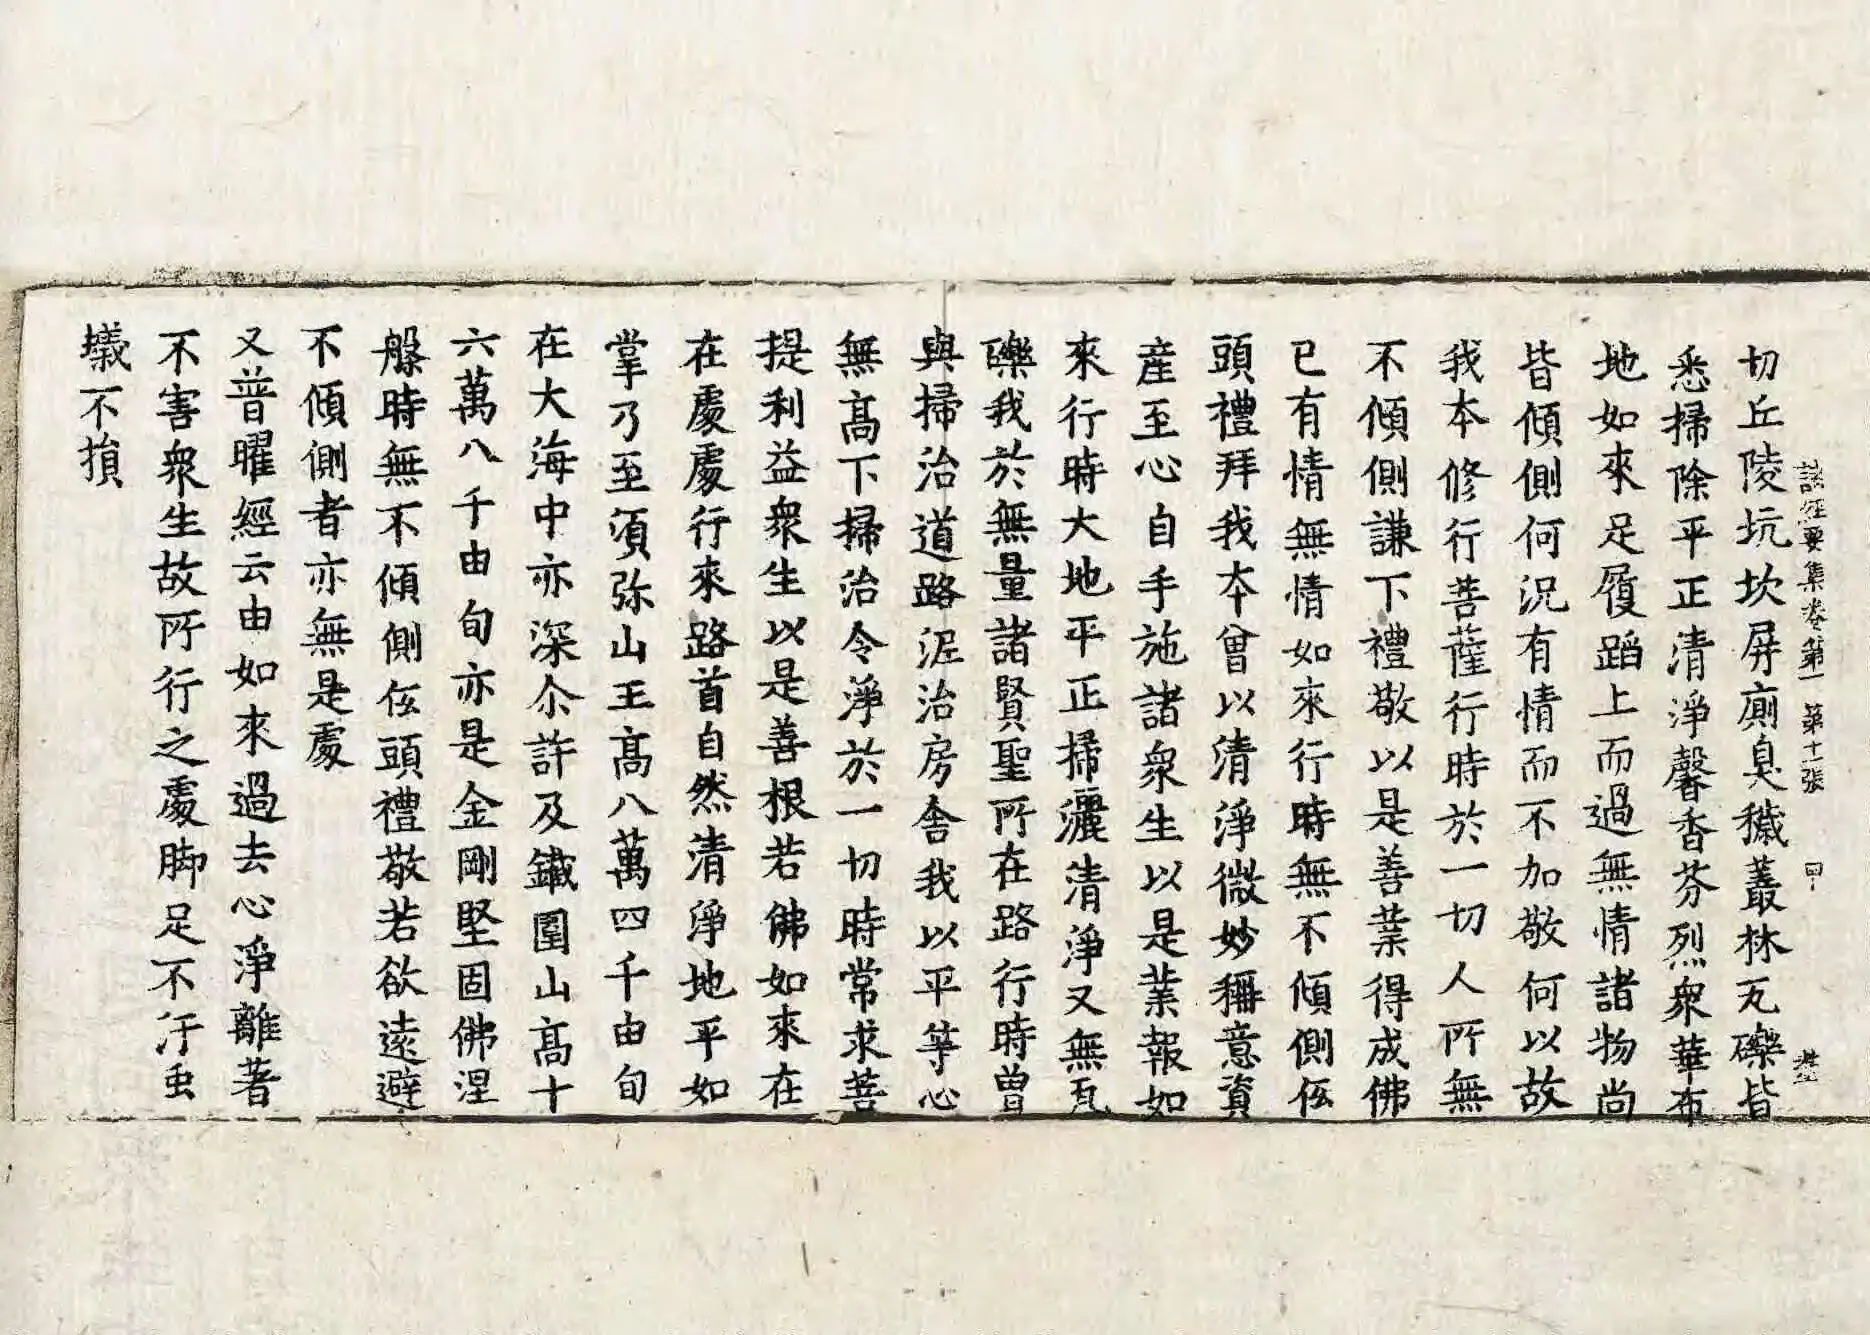 諸經要集卷第一 第十張 甲
切丘陵坑坎屏廁臭穢叢林瓦礫皆
悉掃除平正清淨馨香芬烈衆華布
地如來足履蹈上而過無情諸物尚
皆傾側何況有情而不加敬何以故
我本修行菩薩行時於一切人所無
不傾側謙下禮敬以是善業得成佛
已有情無情如來行時無不傾側伭
頭禮拜我本曾以清淨微妙稱意資
産至心自手施諸衆生以是業報如
來行時大地平正掃灑清淨又無瓦
礫我於無量諸賢聖所在路行時曾
與掃治道路泥治房舍我以平等心
無髙下掃治令淨於一切時常求菩
提利益衆生以是善根若佛如來在
在處處行來路首自然清淨地平如
掌乃至須弥山王髙八萬四千由旬
在大海中亦深尒許及鐵圍山髙十
六萬八千由旬亦是金剛堅固佛涅
槃時無不傾側伭頭禮敬若欲遠避
不傾側者亦無是處
又普曜經云由如來過去心淨離著
不害衆生故所行之處脚足不汙虫
蟻不損